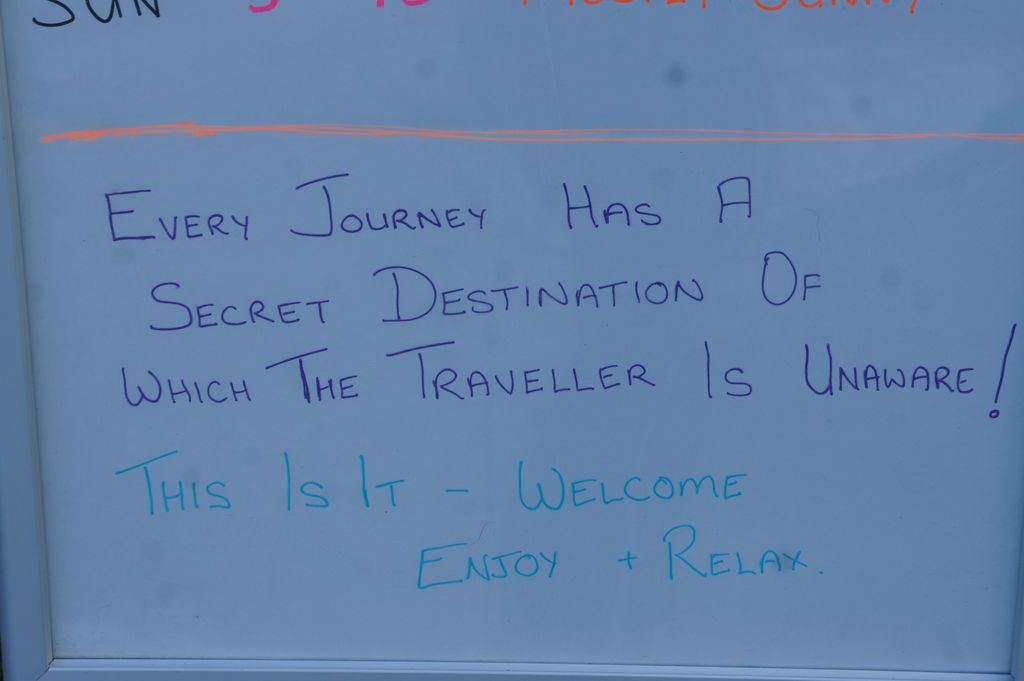 SUN MOSTLY SUNNY
EVERY JOURNEY HAS A
SECRET DESTINATION OF
WHICH THE TRAVELLER IS UNAWARE!
THIS IS IT - WELCOME
ENJOY + RELAX.